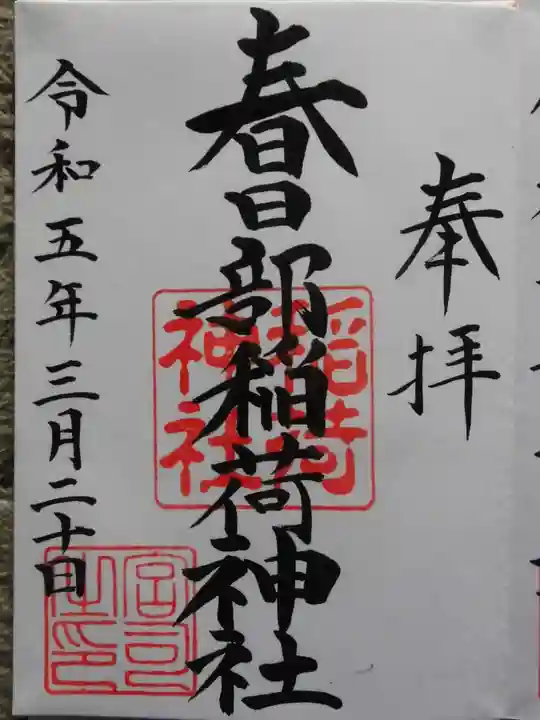 奉拝
春日部稲荷神社
稲荷
神社
令和五年三月二十日
宮司
之印